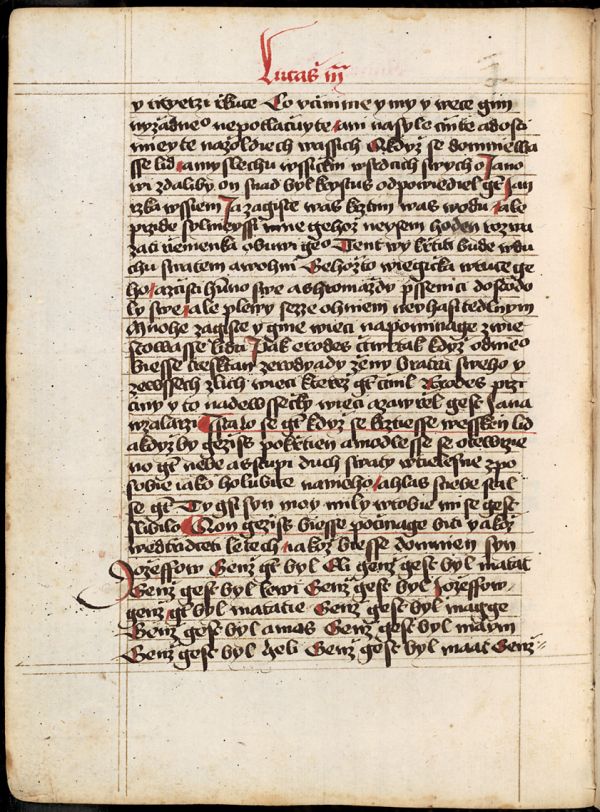 Lucaš iij
y rytierzi řkuce Co včinime y my y wece gim
nyžadneº nepotlačuyte ani nasyle činte adosti
mieyte nažoldiech wassich A když se domniewa
sse lid amyslechu wssickni wsrdcich swych o Jano
wi zdaliby on snad byl krystus odpowiediel gt Jan
rzka wssiem Ja zagiste was krztim was wodu ale
przide sylnieyssi mne gehož neysem hoden rozwa
zati rzemenka obuwi geº Tent wy křtiti bude wdu
chu swatem a wohni Gehožto wiegicka wruce ge
ho azčisti huno swe a shromazdy pssenici do stodo
ly swe ale plewy sezze ohniem neyhasitedlnym
Mnohe zagiste y gine wieci napominage zwie
stowasse lidu Pak erodes čtwrtak když odnieº
biesse tresktan zerodyady ženy bratra sweho y
zewssech zlich wieci kterež gt činil Erodes przi
činy y to nadewssecky wieci azawřel gest Jana
wzalarzi Stalo se gt když se krztiesse wessken lid
a když by gezišs pokrztien a modlesse se otewrzie
no gt nebe a sstupi duch swaty wtielesne zpo
sobie iako holubice naneho a hlas snebe stal
se gt Ty gsi syn moy mily wtobie mi se gest
slibilo A on gezišs biesse počinage byti yakož
wedtrzidceti letech iakož biesse domnien syn
Jozeffow Genž gt byl Eli genž gest byl matat
Genž gest byl lewi Genž gest byl Jozeffow
genž gt byl matatie Genž gest byl magge
Genž gest byl amos Genž gest byl naum
Genž gest byl heli Genž gest byl maat Genž